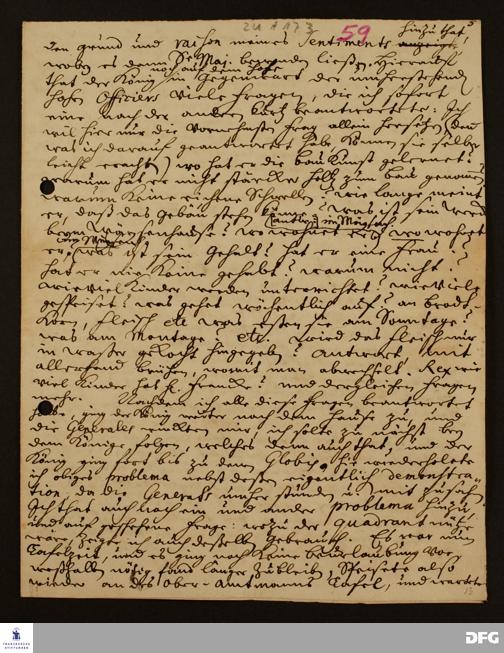 zu A 173
59
hinzu that,
den grund und raison meines Sentiments
wobey es denn Se. Maj. bewenden liessen. Hierauf
that der König in Gegenwart der umherstehenden
hohen Officiers viele fragen, die ich sofort
eine nach der andern kurtz beantwortete: Ich
wil hier nur die Vornehmsten frag allein hersetzen (den
was ich darauf geantwortet habe können sie selber
leicht erachten) wo hat er die baukunst gelernet?
warum hat er nicht stärcker holtz zum bau genommen
warum keine eichene Schwellen? wie lange meint
er, daß das Gebäu stehen könne? was ist sein werck
beym Waysenhause? wo wohnet
er? was ist sein Gehalt? hat er eine Frau?
hat er nie keine gehabt? warum nicht?
wieviel Kinder werden unterrichtet? wieviel
gespeiset? was gehet wöchentlich auf? an brodt-
Korn, fleisch etc was essen sie am Sonntage?
was am Montage? etc. wird das fleisch nur
in wasser gekocht hingegeben? Antwort mit
allerhand
viel Kinder hat H. Francke? und dergleichen fragen
mehr. Nachdem ich alle diese fragen beantwortet
hatte, ging der König weiter nach dem hause zu, und
die Generales wolten mir, ich solte zu nächst bey
dem Könige folgen, welches denn auch that, und der
König ging fort bis zu dem Globis, hie wiederholete
ich obiges problema nebst dessen eigentlich Demonstra-
tion, da die Generals umher stunden u. mit zusahen
Ich that auch noch ein und ander problema hinzu
und auf geschehene frage: wozu der quadrant nütze
ware, zeigete ich auch desselben Gebrauch. Es war nun
Tafelzeit, und es ging noch keine beurlaubung vor,
weßhalben nöthig fand länger zubleiben, speisete also
wieder an des Ober-Amtmanns Tafel, und wartete
FRANCKESCHE STIFTUNGEN
DFG